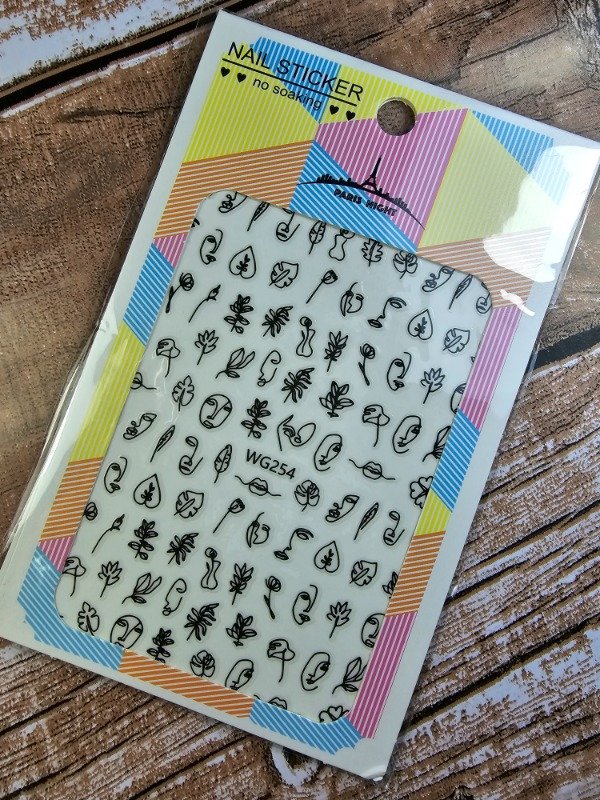 NAIL STICKER
♥ ♥ no soaking ♥ ♥
PARIS NIGHT
WG254